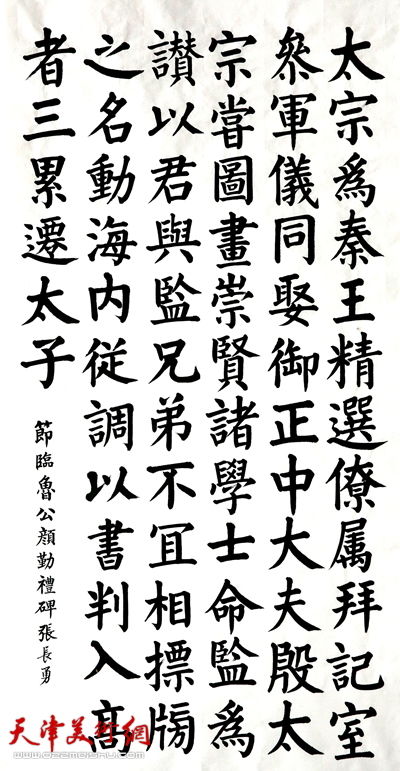 太宗爲秦王精選僚属拜記室
叅軍儀同娶御正中大夫殷太
宗嘗圖畫崇賢諸學士命監為
讃以君與監兄弟不冝相摽牓
之名動海内従調以書判入髙
者三累遷太子
節臨魯公顏勤禮碑張長勇
天津美術網
www.022meishu.com